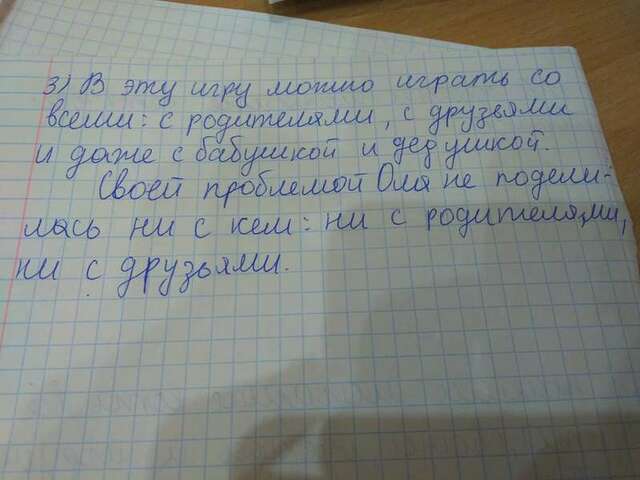 3) В эту игру можно играть со
всеми: с родителями, с друзьями
и даже с бабушкой и дедушкой.
Своей проблемой Оля не подели-
лась ни с кем: ни с родителями,
ни с друзьями.